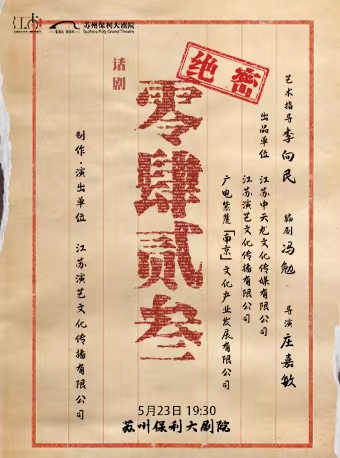 苏州保利大剧院
Suzhou Poly Grand Theatre
绝密
艺术指导 李向民 编剧 冯勉 导演 庄嘉敏
出品单位 江苏中天龙文化传媒有限公司
江苏演艺文化传播有限公司
广电紫荆「南京」文化产业发展有限公司
话剧
零肆贰叁
制作·演出单位 江苏演艺文化传播有限公司
5月23日 19:30
苏州保利大剧院